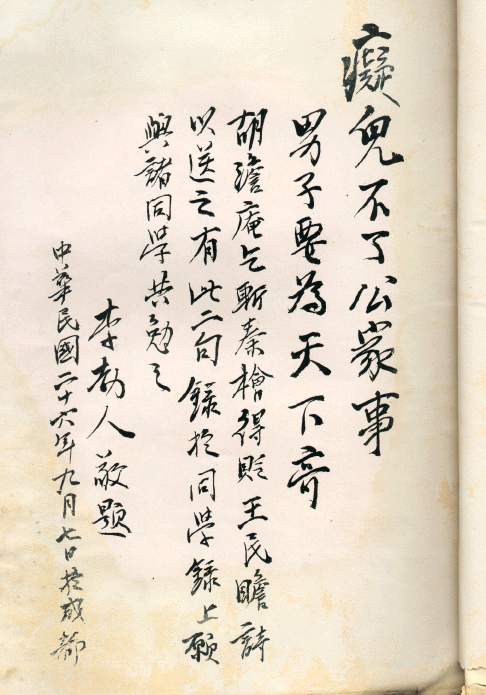 癡兒不了公家事
男子要為天下奇
胡澹庵乞斬秦檜得貶王民瞻詩
以送之有此二句錄於同學錄上願
與諸同學共勉之
李劼人敬題
中華民國二十六年九月七日於成都